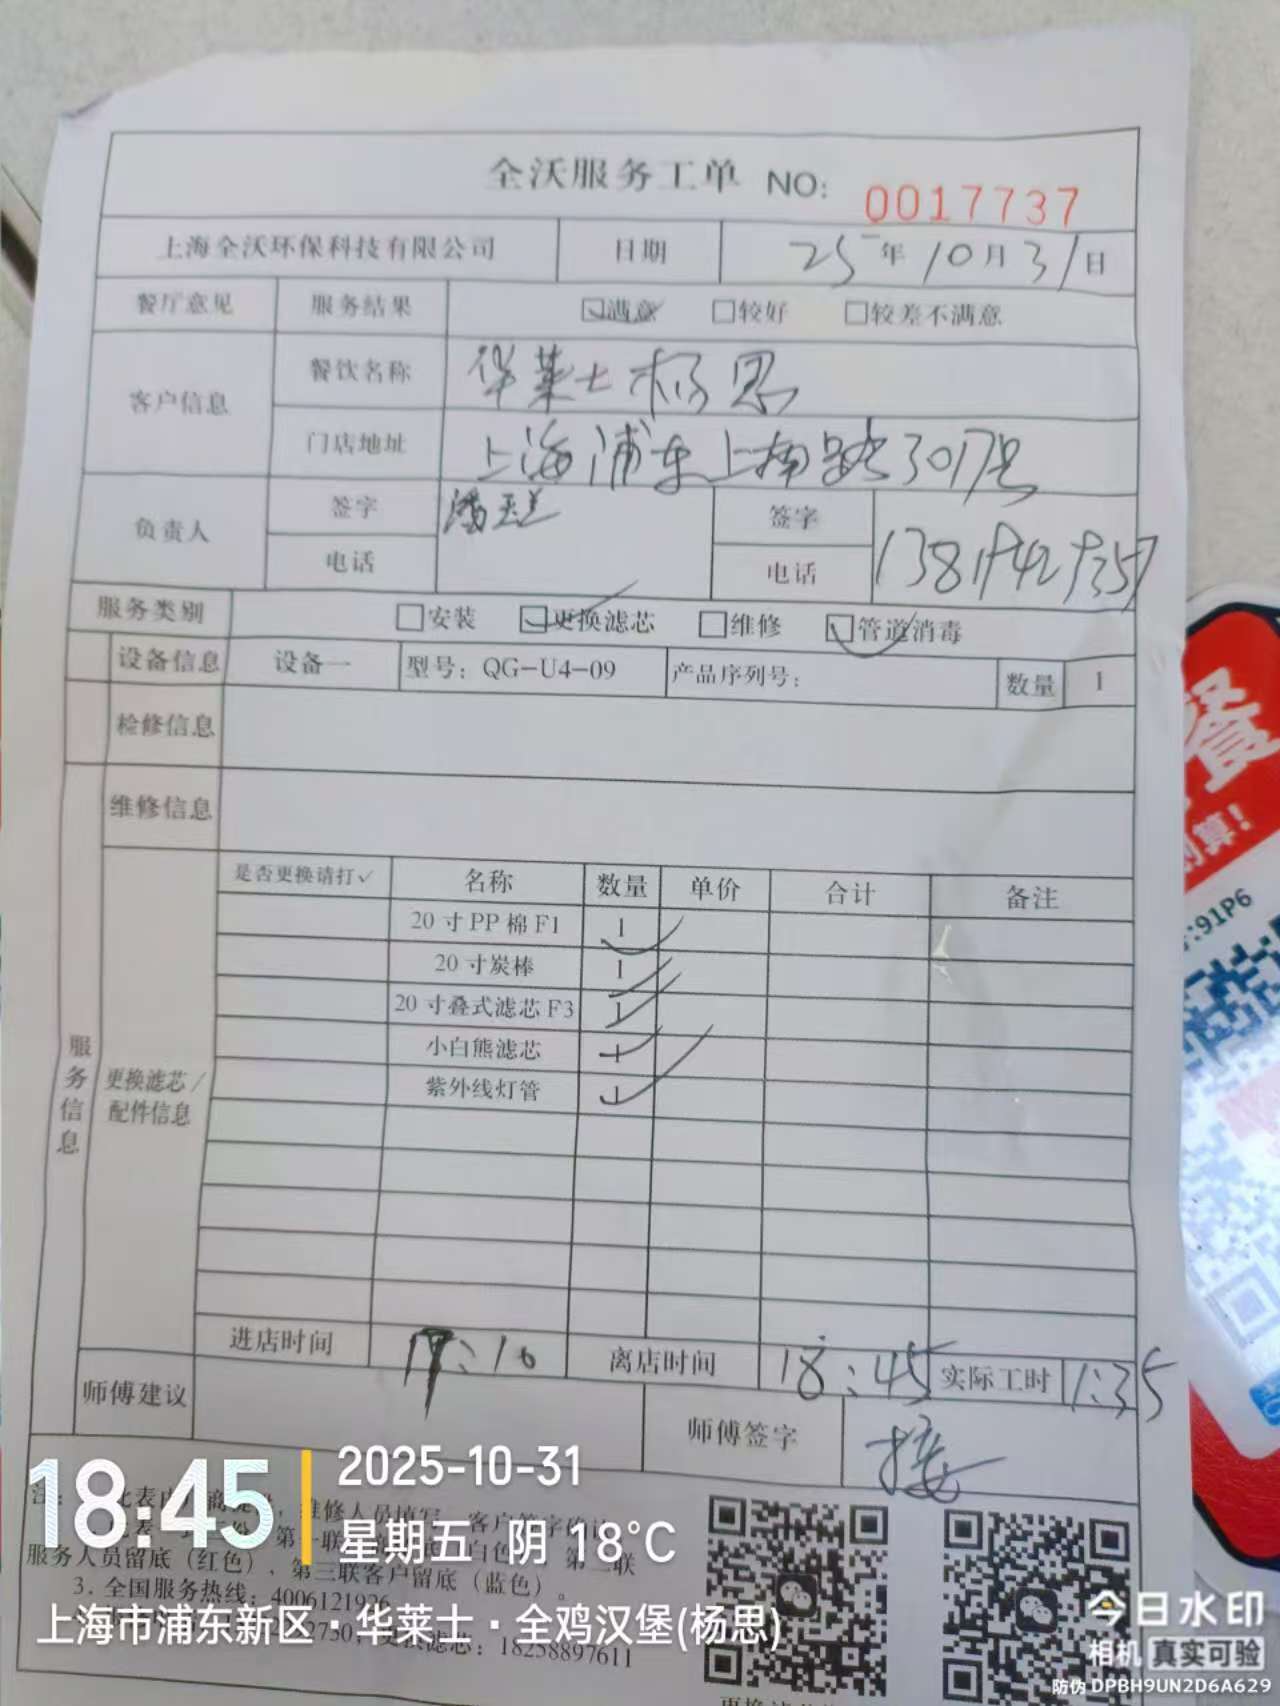 全沃服务工单 NO: 0017737
上海全沃环保科技有限公司 日期 25年10月31日
餐厅意见 服务结果 ☑满意 □较好 □较差不满意
客户信息 餐饮名称 华莱士杨思
门店地址 上海浦东上南路3017号
负责人 签字 签字
电话 电话
服务类别 □安装 ☑更换滤芯 □维修 ☑管道消毒
设备信息 设备一 型号：QG-U4-09 产品序列号： 数量 1
检修信息
维修信息
服务信息
更换滤芯/配件信息
是否更换请打✓ 名称 数量 单价 合计 备注
20寸PP棉F1 1
20寸炭棒 1
20寸叠式滤芯F3 1
小白熊滤芯 1
紫外线灯管 1
进店时间 17:10 离店时间 18:45 实际工时 1:35
师傅建议 师傅签字
服务人员留底（红色），第三联客户留底（蓝色）。
3. 全国服务热线：4006121926
更换滤芯：18258897611
18:45
2025-10-31
星期五 阴 18°C
上海市浦东新区·华莱士·全鸡汉堡(杨思)
今日水印
相机 真实可验
防伪 DPBH9UN2D6A629
餐
算!
:91P6